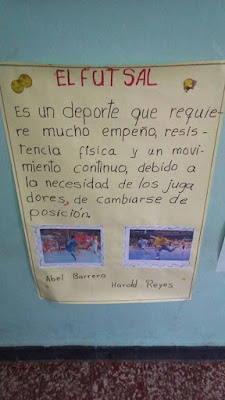 EL FUTSAL
Es un deporte que requie-
re mucho empeño, resis-
tencia física y un movi-
miento continuo, debido a
la necesidad de los juga
dores, de cambiarse de
posición.
Abel Barrero
Harold Reyes